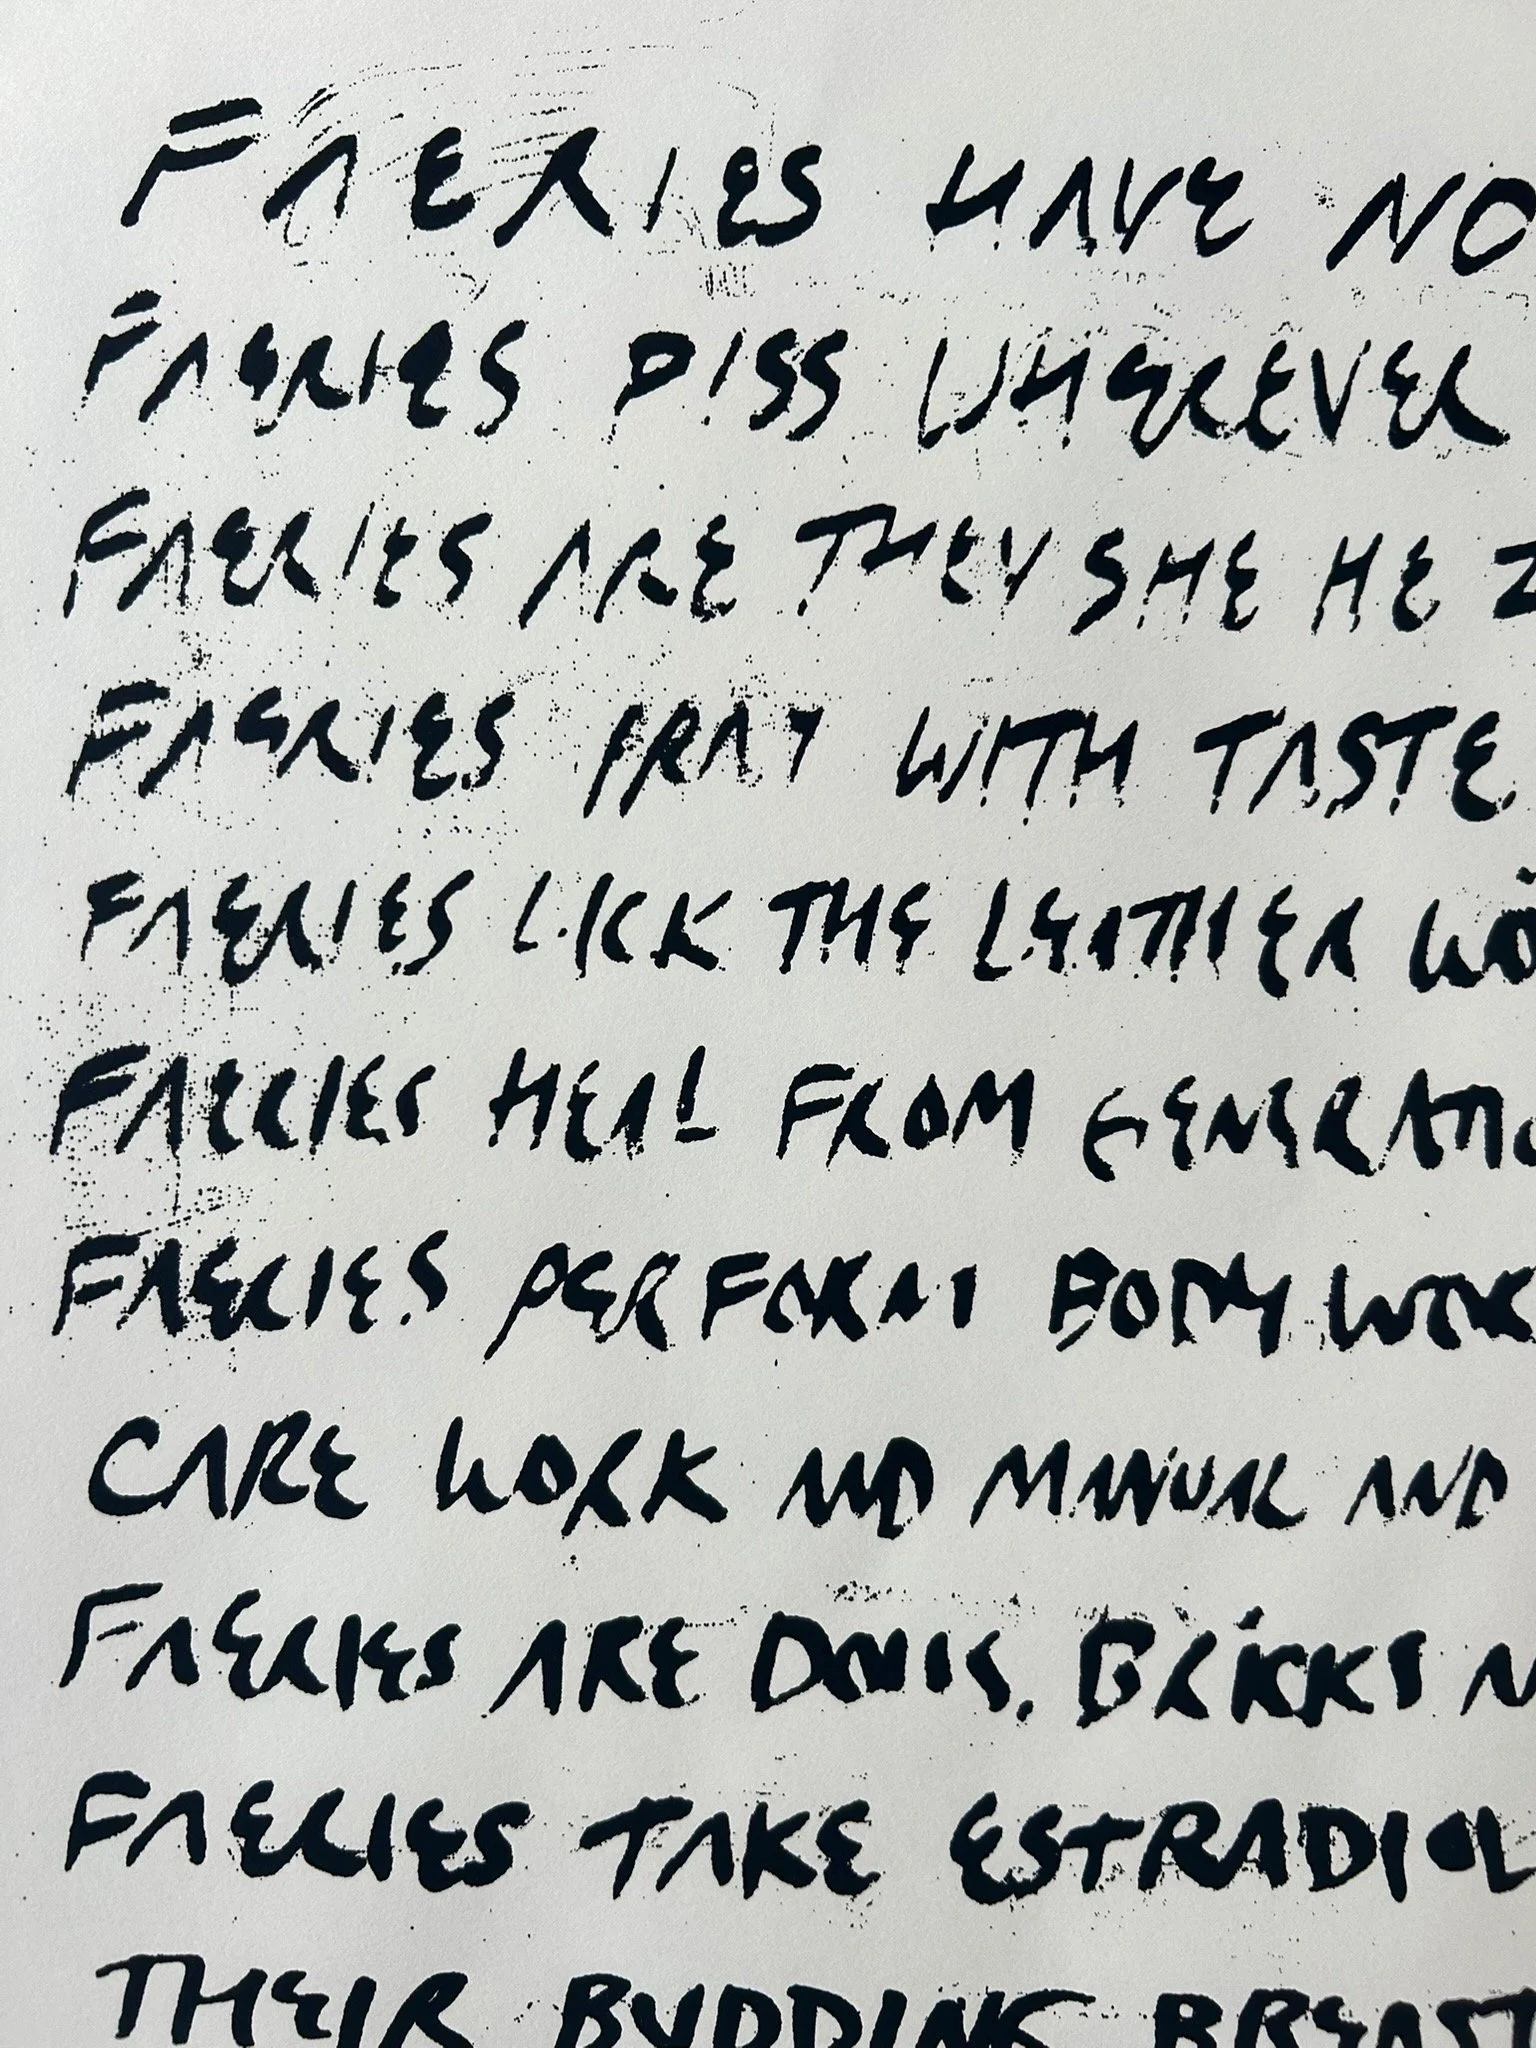 FAERIES HAVE NO
FAERIES PISS WHEREVER
FAERIES ARE THEY SHE HE Z
FAERIES PRAY WITH TASTE
FAERIES LICK THE LEATHER
FAERIES HEAL FROM
FAERIES PERFORM BODY WORK
CARE WORK AND MANUAL AND
FAERIES ARE
FAERIES TAKE ESTRADIOL
THEIR BUDDING BREAST